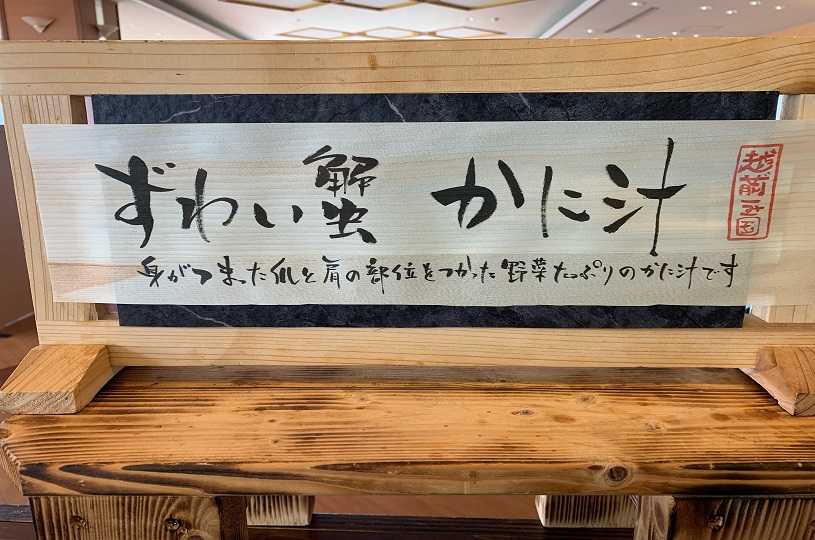 ずわい蟹 かに汁
身がつまった爪と肩の部位をつかった野菜たっぷりのかに汁です
越前